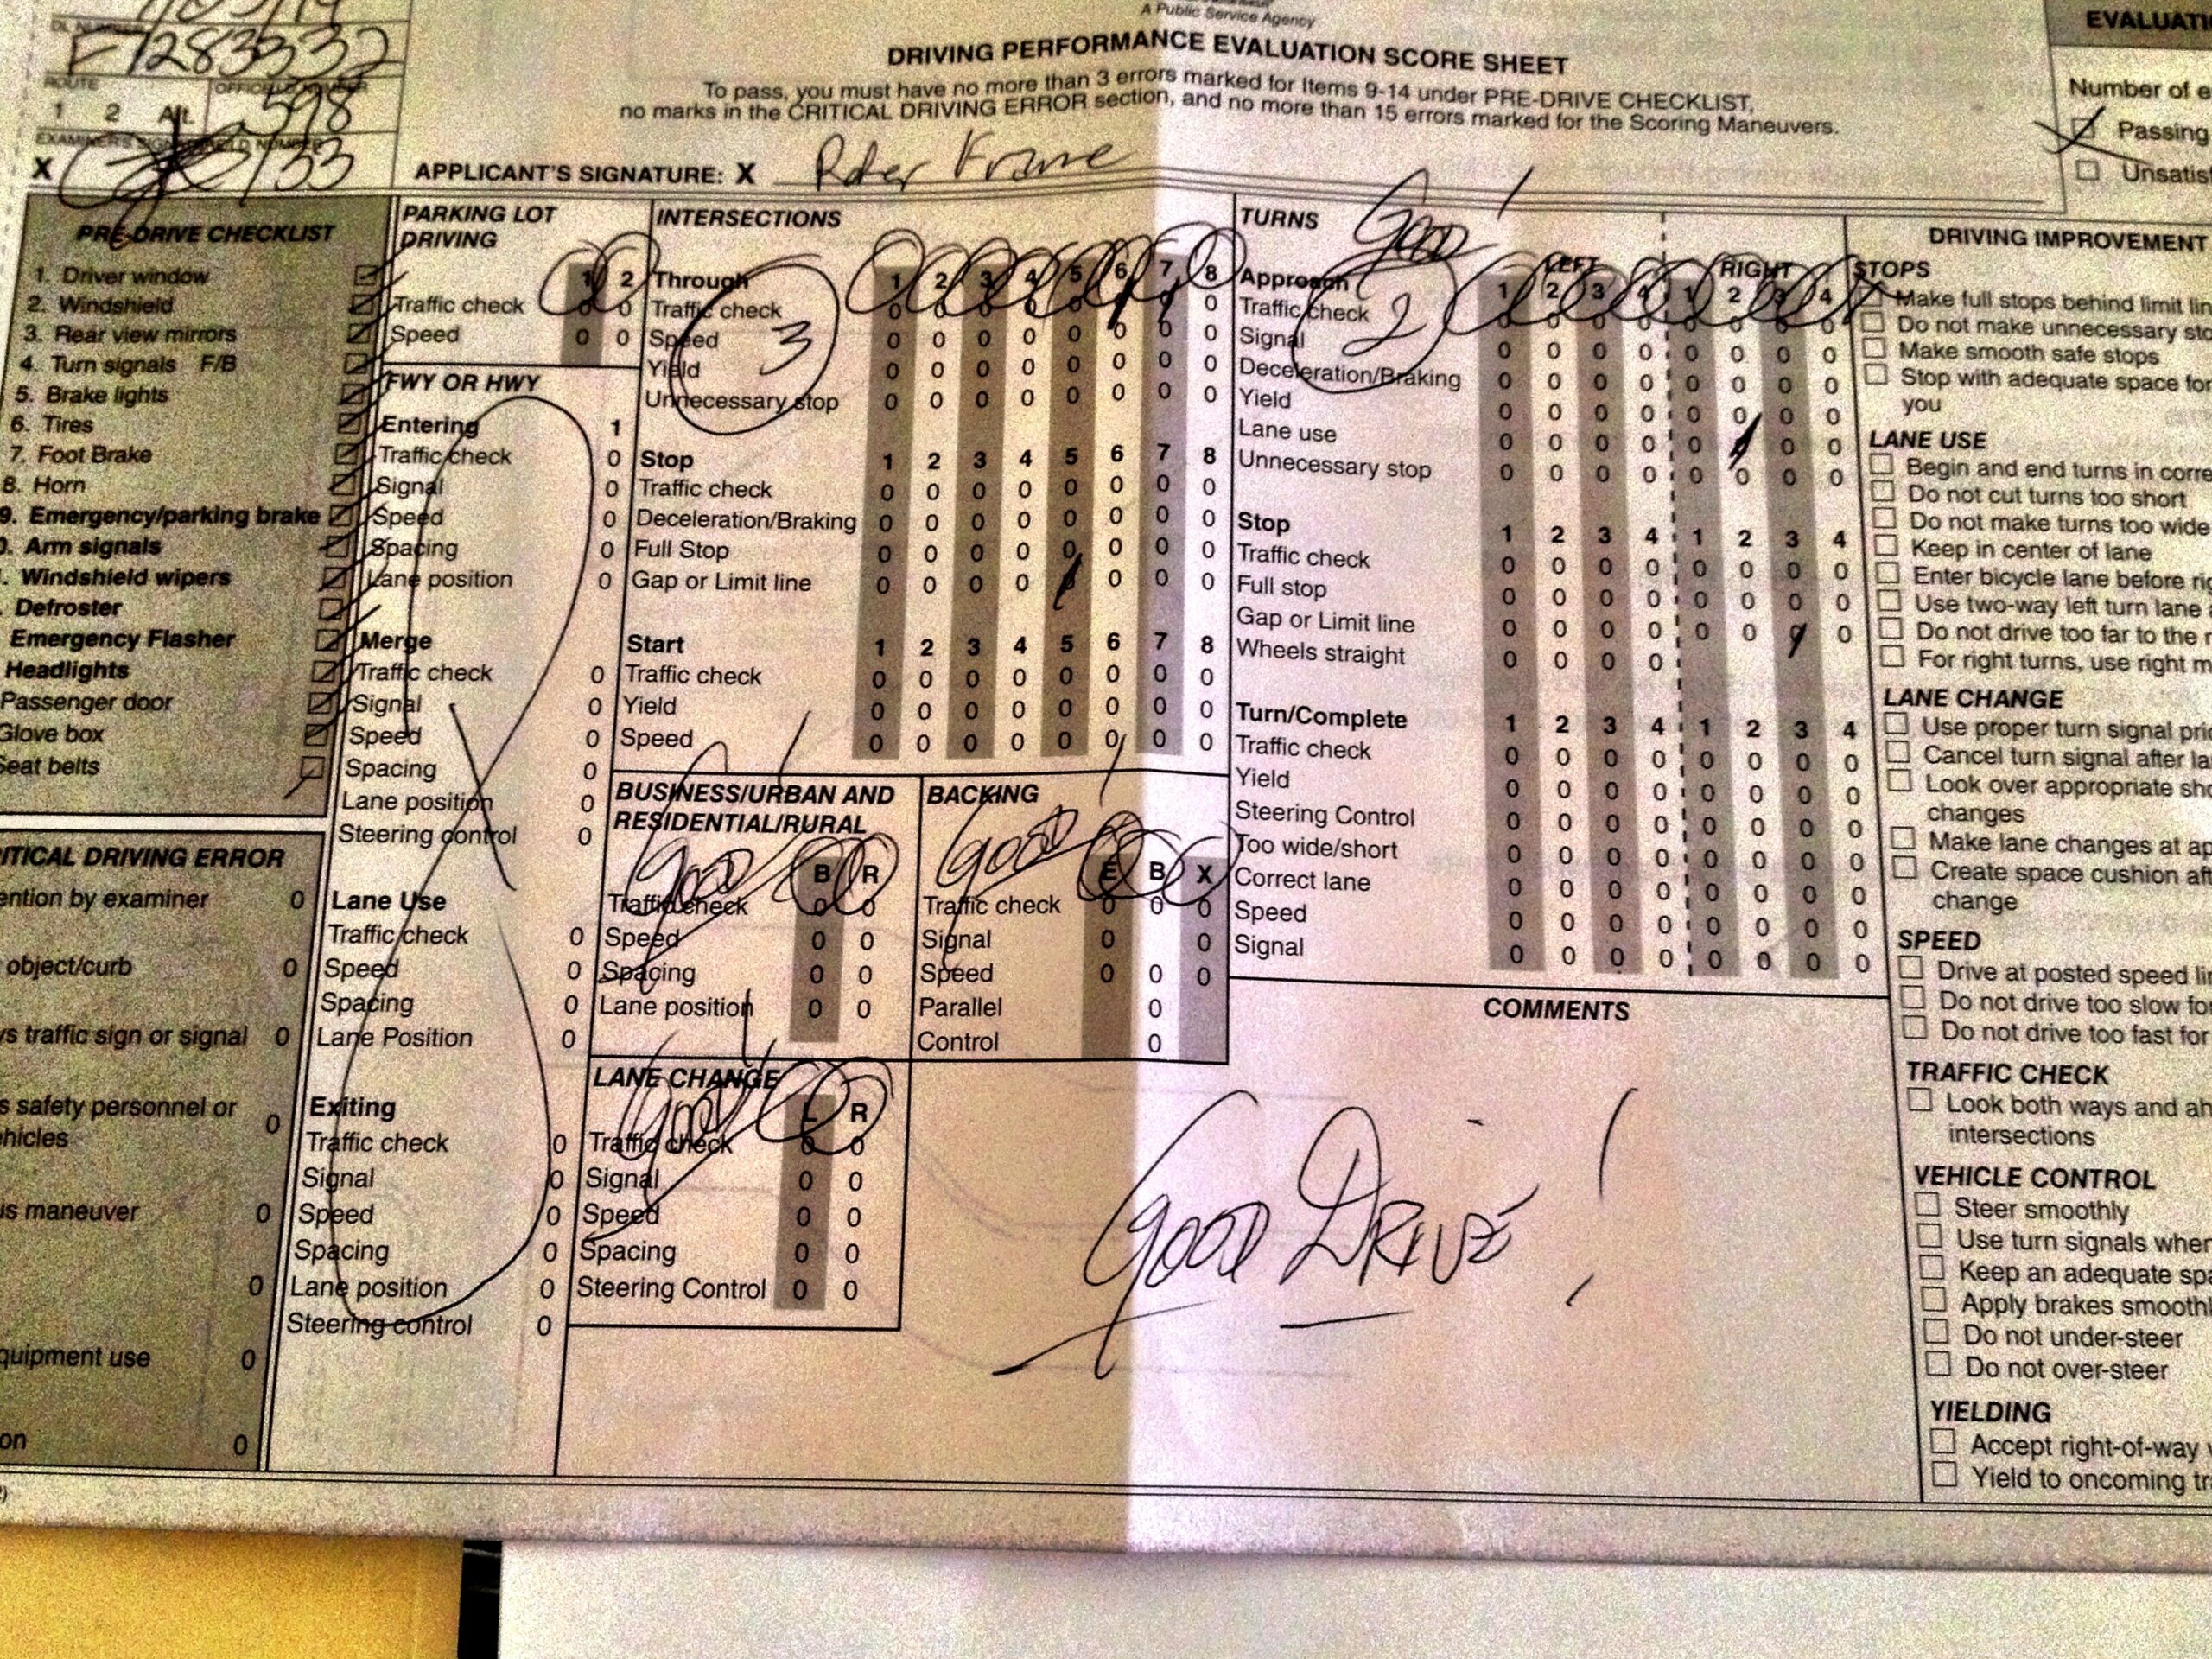 A Public Service Agency
DRIVING PERFORMANCE EVALUATION SCORE SHEET
To pass, you must have no more than 3 errors marked for Items 9-14 under PRE-DRIVE CHECKLIST,
no marks in the CRITICAL DRIVING ERROR section, and no more than 15 errors marked for the Scoring Maneuvers.
DL NUMBER
F1283332
ROUTE
1 2 Alt.
598
X 133
APPLICANT'S SIGNATURE: X
EVALUATI
Number of e
Passing
Unsatisf
PRE-DRIVE CHECKLIST
1. Driver window
2. Windshield
3. Rear view mirrors
4. Turn signals F/B
5. Brake lights
6. Tires
7. Foot Brake
8. Horn
9. Emergency/parking brake
0. Arm signals
. Windshield wipers
. Defroster
Emergency Flasher
Headlights
Passenger door
Glove box
Seat belts
ITICAL DRIVING ERROR
ention by examiner 0
object/curb 0
ys traffic sign or signal 0
s safety personnel or
hicles 0
us maneuver 0
0
quipment use 0
on 0
PARKING LOT
DRIVING
1 2
Traffic check 0 0
Speed 0 0
FWY OR HWY
Entering 1
Traffic check 0
Signal 0
Speed 0
Spacing 0
Lane position 0
Merge
Traffic check 0
Signal 0
Speed 0
Spacing 0
Lane position 0
Steering control 0
Lane Use
Traffic check 0
Speed 0
Spacing 0
Lane Position 0
Exiting
Traffic check 0
Signal 0
Speed 0
Spacing 0
Lane position 0
Steering control 0
INTERSECTIONS
Through 1 2 3 4 5 6 7 8
Traffic check 0 0 0 0 0 0 0 0
Speed 0 0 0 0 0 0 0 0
Yield 0 0 0 0 0 0 0 0
Unnecessary stop 0 0 0 0 0 0 0 0
3
Stop 1 2 3 4 5 6 7 8
Traffic check 0 0 0 0 0 0 0 0
Deceleration/Braking 0 0 0 0 0 0 0 0
Full Stop 0 0 0 0 0 0 0 0
Gap or Limit line 0 0 0 0 0 0 0 0
Start 1 2 3 4 5 6 7 8
Traffic check 0 0 0 0 0 0 0 0
Yield 0 0 0 0 0 0 0 0
Speed 0 0 0 0 0 0 0 0
BUSINESS/URBAN AND
RESIDENTIAL/RURAL
Good!
B R
Traffic check 0 0
Speed 0 0
Spacing 0 0
Lane position 0 0
BACKING
Good!
E B X
Traffic check 0 0 0
Signal 0 0
Speed 0 0 0
Parallel 0
Control 0
LANE CHANGE
Good!
L R
Traffic check 0 0
Signal 0 0
Speed 0 0
Spacing 0 0
Steering Control 0 0
TURNS
Good!
LEFT RIGHT
Approach 1 2 3 4 1 2 3 4
Traffic check 0 0 0 0 0 0 0 0
Signal 0 0 0 0 0 0 0 0
Deceleration/Braking 0 0 0 0 0 0 0 0
Yield 0 0 0 0 0 0 0 0
Lane use 0 0 0 0 0 0 0 0
Unnecessary stop 0 0 0 0 0 0 0 0
2
Stop 1 2 3 4 1 2 3 4
Traffic check 0 0 0 0 0 0 0 0
Full stop 0 0 0 0 0 0 0 0
Gap or Limit line 0 0 0 0 0 0 0 0
Wheels straight 0 0 0 0
Turn/Complete 1 2 3 4 1 2 3 4
Traffic check 0 0 0 0 0 0 0 0
Yield 0 0 0 0 0 0 0 0
Steering Control 0 0 0 0 0 0 0 0
Too wide/short 0 0 0 0 0 0 0 0
Correct lane 0 0 0 0 0 0 0 0
Speed 0 0 0 0 0 0 0 0
Signal 0 0 0 0 0 0 0 0
COMMENTS
Good DRIVE!
DRIVING IMPROVEMENT
STOPS
Make full stops behind limit lin
Do not make unnecessary sto
Make smooth safe stops
Stop with adequate space for
you
LANE USE
Begin and end turns in corre
Do not cut turns too short
Do not make turns too wide
Keep in center of lane
Enter bicycle lane before rig
Use two-way left turn lane
Do not drive too far to the r
For right turns, use right m
LANE CHANGE
Use proper turn signal prio
Cancel turn signal after la
Look over appropriate sho
changes
Make lane changes at ap
Create space cushion aft
change
SPEED
Drive at posted speed lin
Do not drive too slow for
Do not drive too fast for
TRAFFIC CHECK
Look both ways and ah
intersections
VEHICLE CONTROL
Steer smoothly
Use turn signals wher
Keep an adequate spa
Apply brakes smoothl
Do not under-steer
Do not over-steer
YIELDING
Accept right-of-way
Yield to oncoming tra